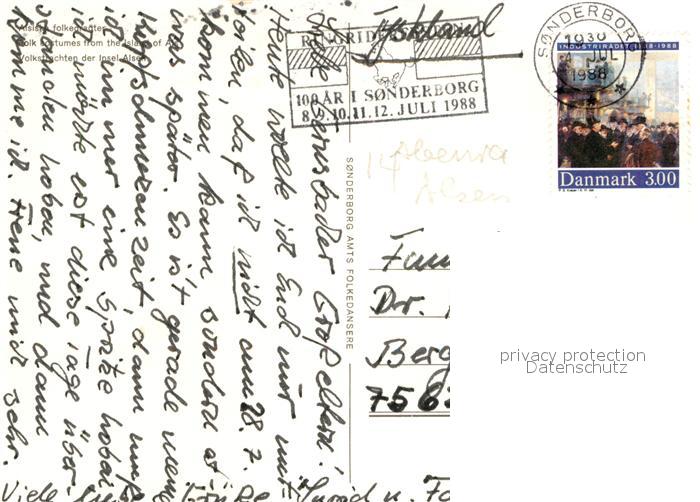 Alsiske folkedragter
Folk costumes from the Island of Als
Volkstrachten der Insel Alsen
Tyskland
RINGRIDER
100 ÅR I SØNDERBORG
8. 9. 10. 11. 12. JULI 1988
SØNDERBORG
1930
JUL
1988
INDUSTRIRÅDET 1838-1988
Danmark 3.00
14 Abenra
Alsen
SØNDERBORG AMTS FOLKEDANSERE
Liebe Großeltern!
Heute wollte ich Euch nur mit-
teilen, daß ich nicht am 28. 7.
kommen kann, sondern et-
was später. Es ist gerade
zeit, dann muß
ich immer eine Spritze haben
ich möchte erst diese Tage über-
standen haben, und dann
komme ich. Freue mich sehr.
Viele Grüße Ingrid u. Fa
Fam
Dr.
Berg
756
privacy protection
Datenschutz